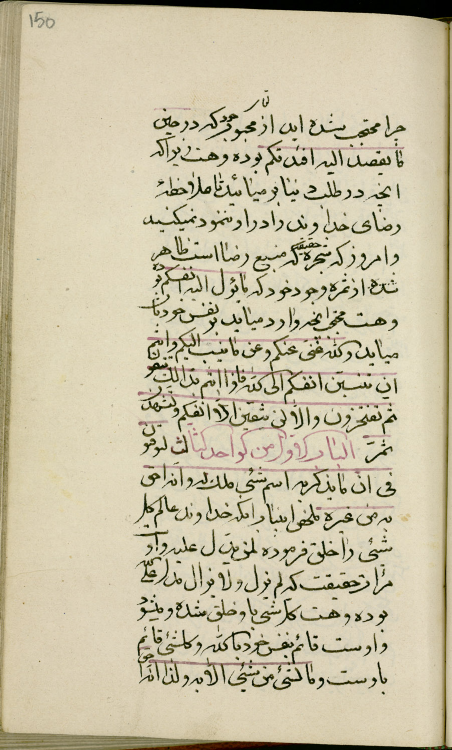 150
چرا محتجب شده اید از محبوب خود که در حین
ما یقصدن الیه افئدتکم بوده و هست زیرا که
آنچه در طلب دنیا بر میائید تا ملاحظه
رضای خداوند را در او ننمود نمیکنید
و امروز که شجره حقیقت که منبع رضا است ظاهر
شده از ثمره وجود خود که ما یؤل الیه انفسکم بوده
و هست محتجب و وارد میاید بر نفس خود آنچه
میاید و کنه غنی عنکم و عن ما ینسب الیکم و انتم
ان تنسبن انفسکم الی الله
ثم تفتخرون و الا لن تتقین الا انفسکم و
ثمر الباب الاول من الواحد الثالث
فی ان ما یذکر به اسم شئی ملک له و انه احق
به من غیره ملخص این باب آنکه خداوند عالم کل
شئی را خلق فرموده لمن یدل علیه و او
مرآت حقیقت که لم یزل و لا یزال مدل علی الله
بوده و هست کل شئی باو خلق شده و میشود
و اوست قائم بنفس خود بالله و کل شئی قائم
باوست و ما لشئی من شئی الا به و لذا انه احق